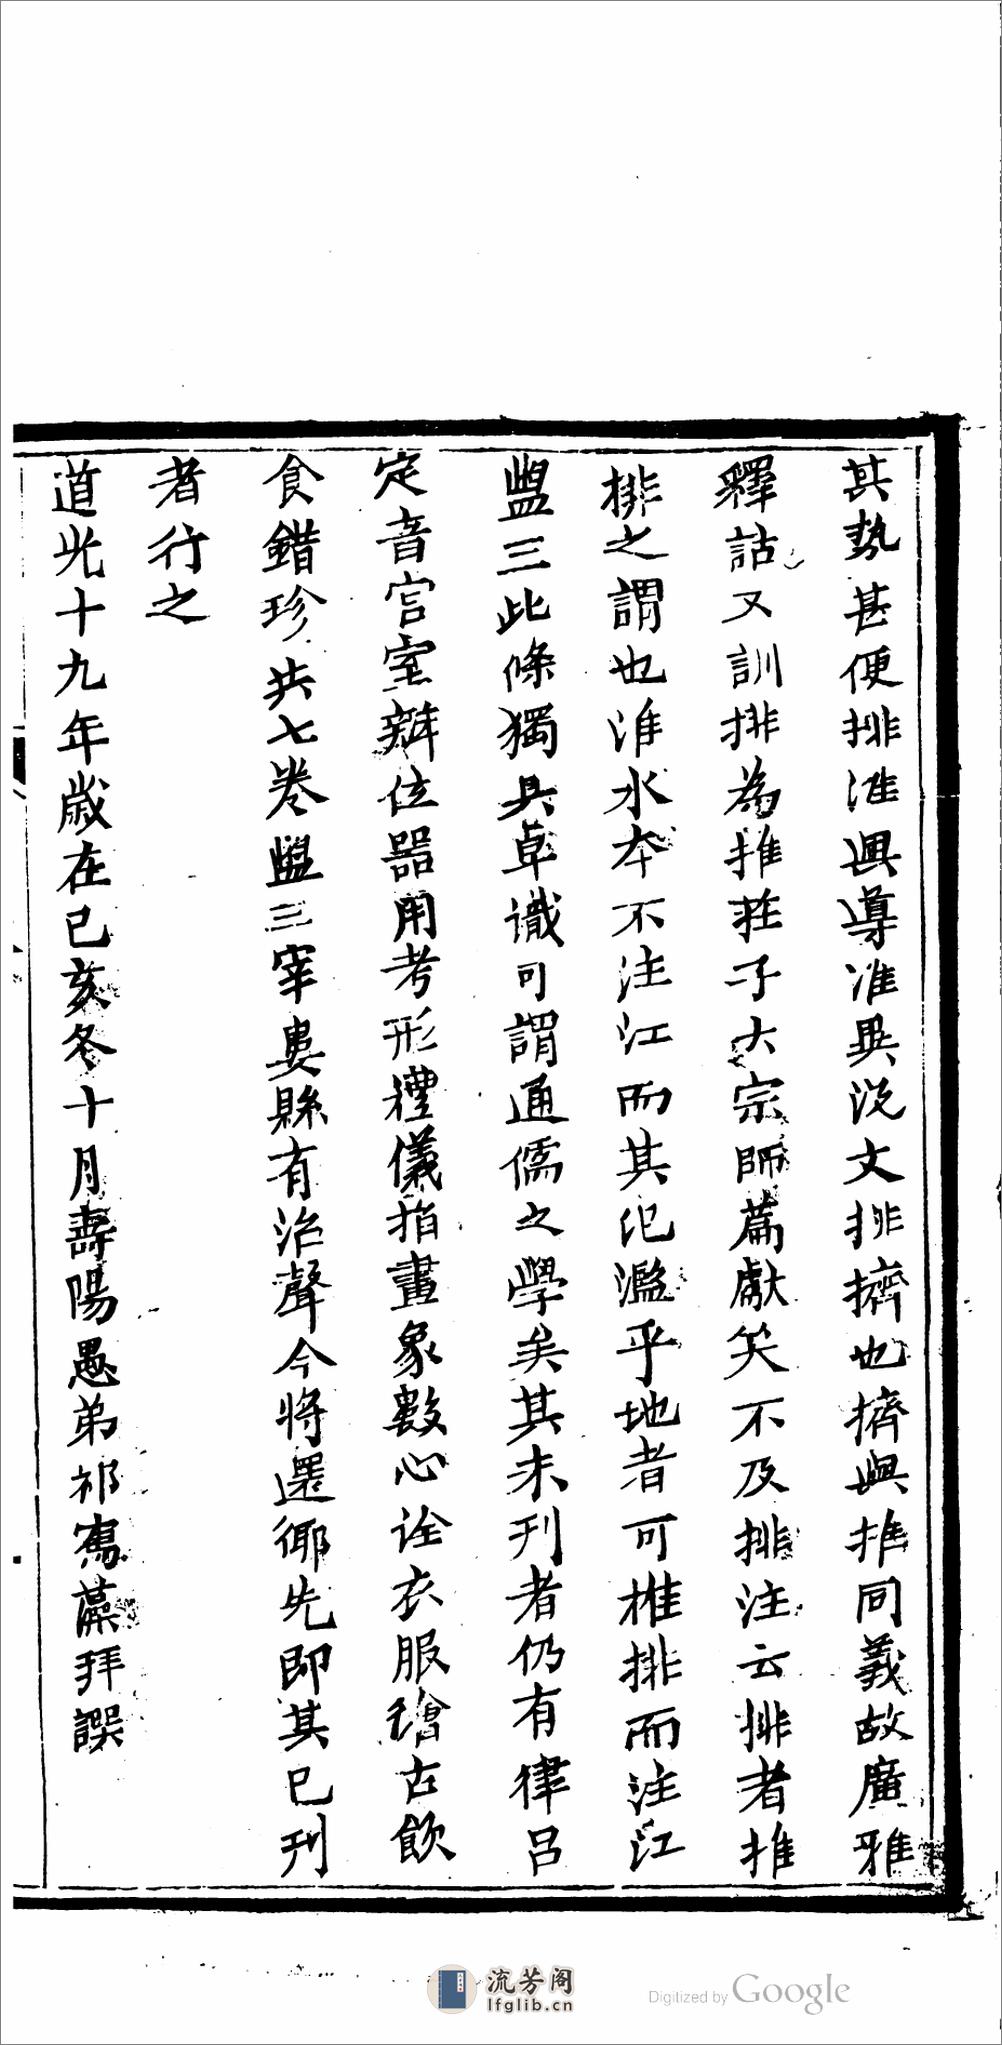 其勢甚便排淮與導淮異說文排擠也擠與推同義故廣雅
釋詁又訓排為推莊子大宗師篇獻笑不及排注云排者推
排之謂也淮水本不注江而其氾濫乎地者可推排而注江
盥三此條獨具卓識可謂通儒之學矣其未刊者仍有律呂
定音宮室辯位器用考形禮儀指畫象數心詮衣服繪古飲
食錯珍共七卷盥三宰婁縣有治聲今將還鄉先即其已刊
者行之
道光十九年歲在己亥冬十月壽陽愚弟祁寯藻拜譔
流芳阁
lfglib.cn
Digitized by Google